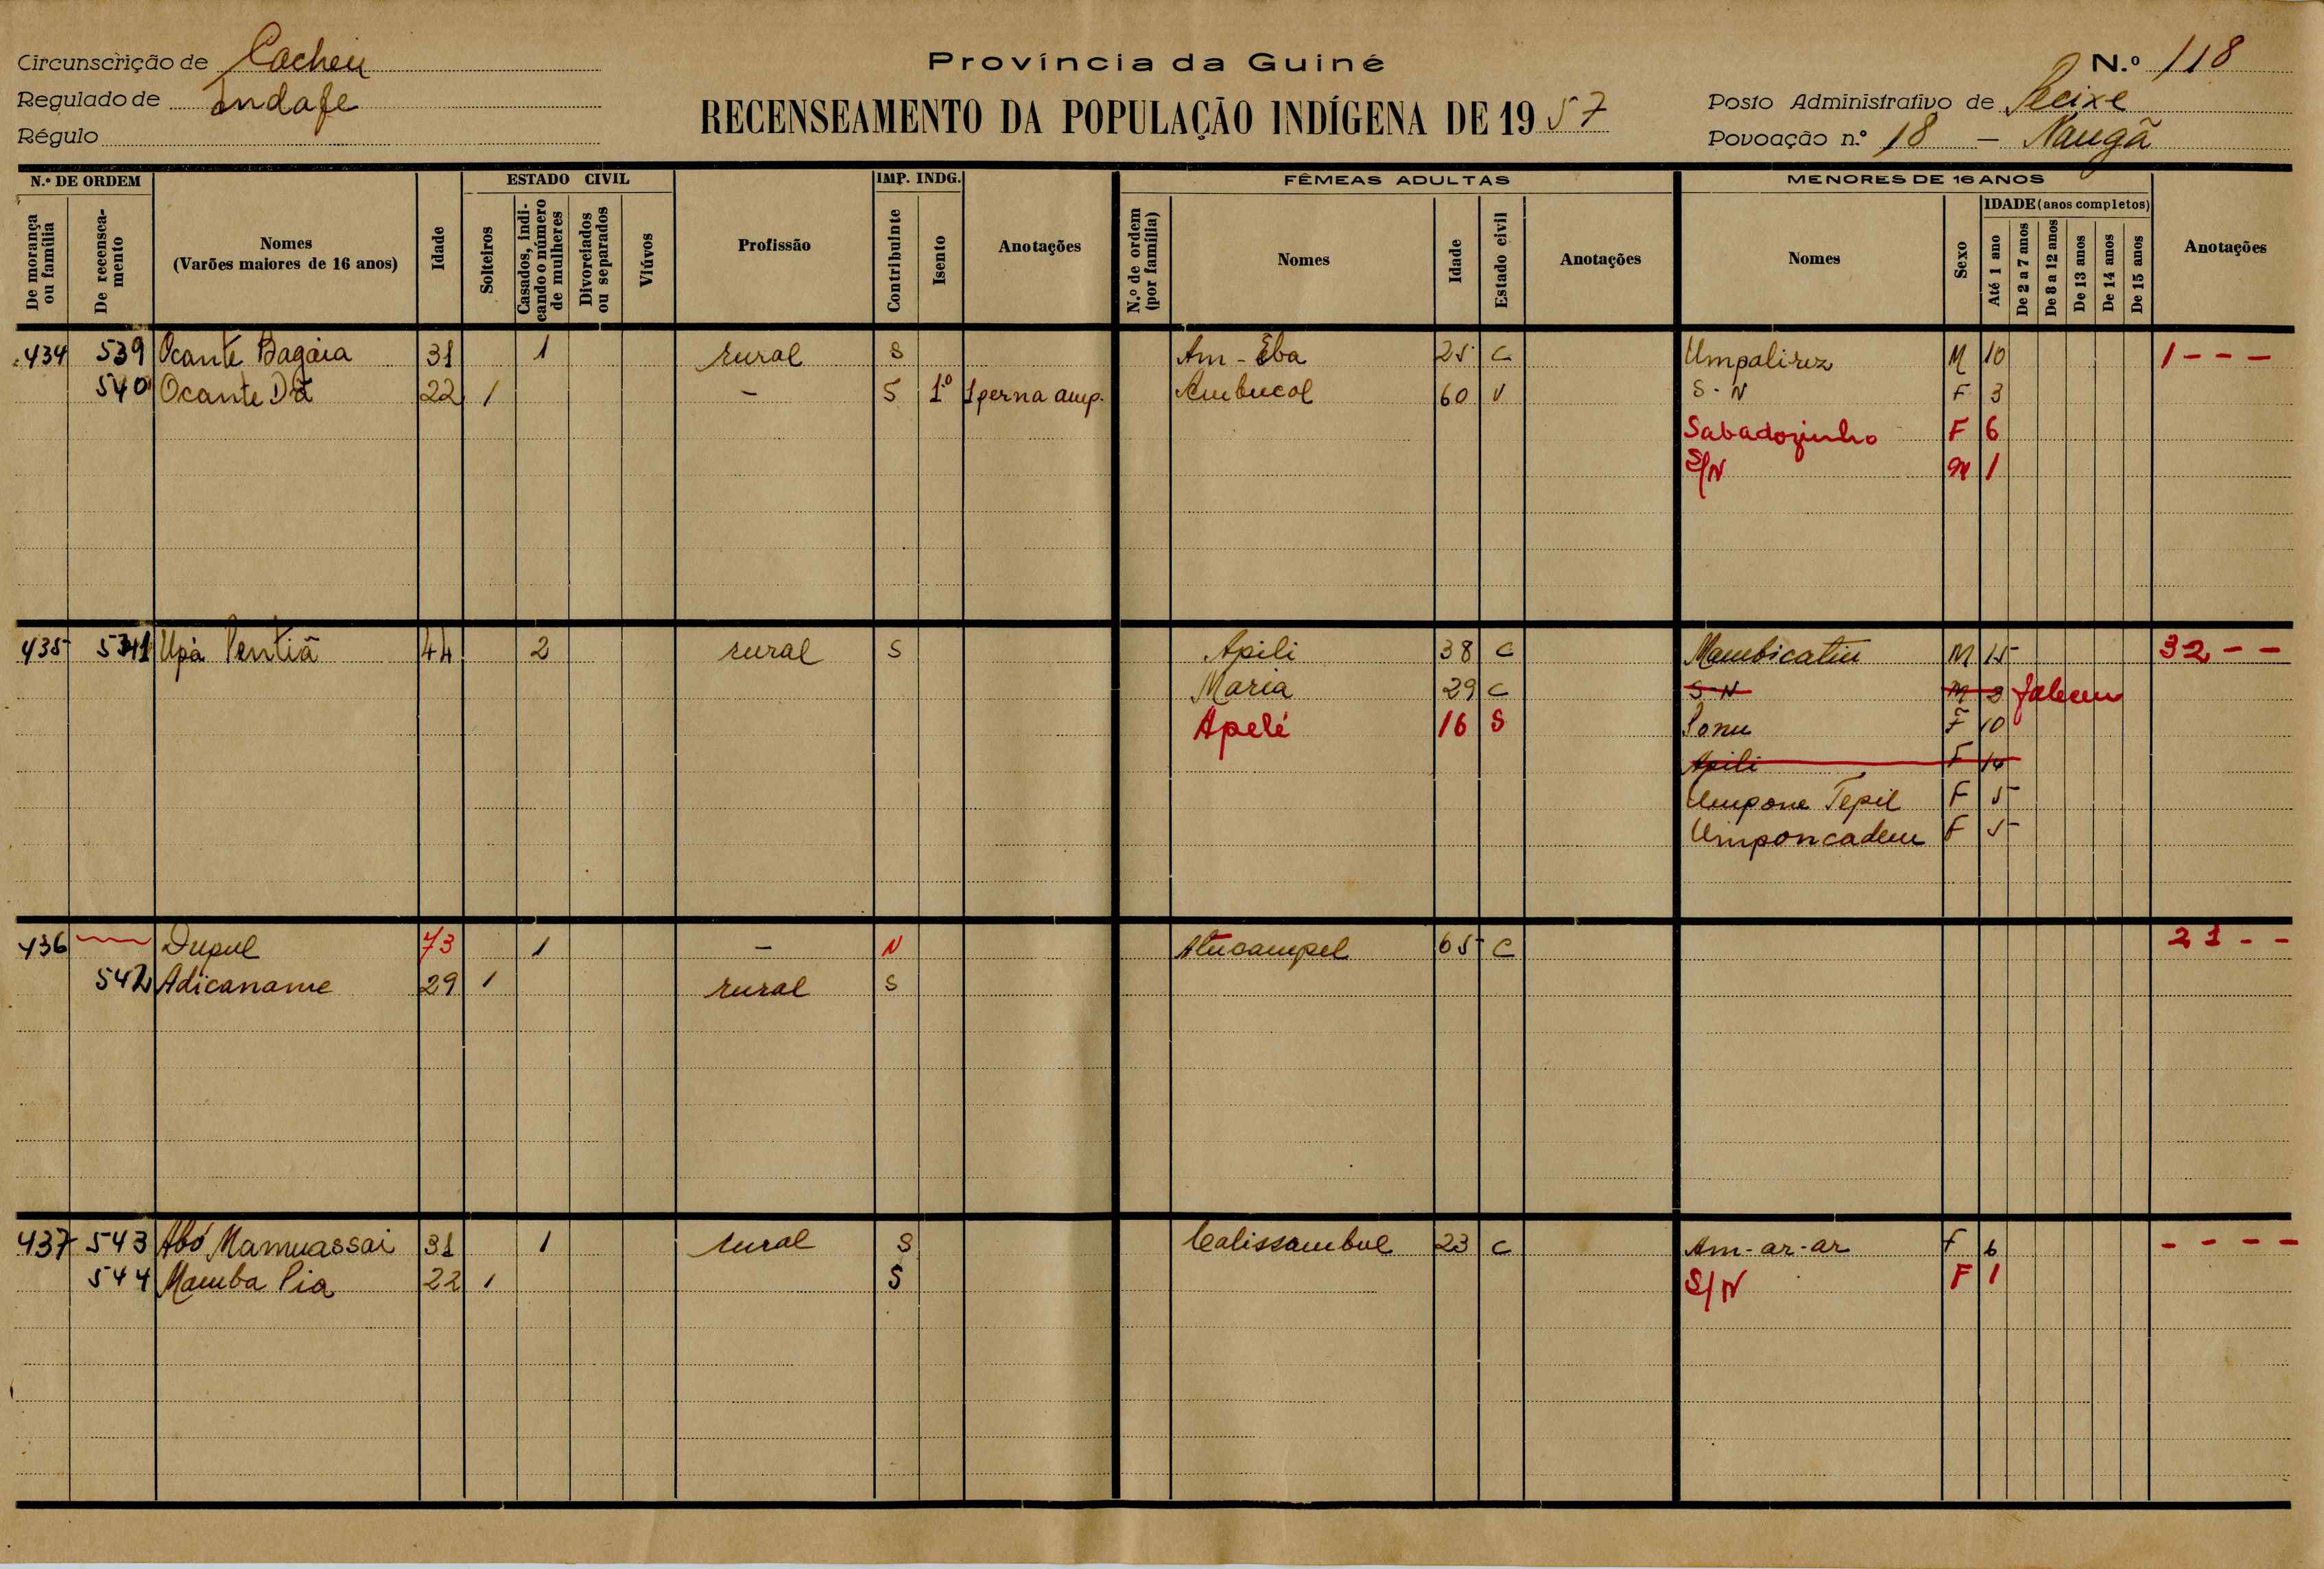 Circunscrição de Cacheu
Regulado de Indafe
Régulo
Província da Guiné
RECENSEAMENTO DA POPULAÇÃO INDÍGENA DE 1957
N.º 118
Posto Administrativo de Pecixe
Povoação n.º 18 — Naugã
N.º DE ORDEM
De morança ou família
De recenseamento
Nomes
(Varões maiores de 16 anos)
Idade
ESTADO CIVIL
Solteiros
Casados, indicando o número de mulheres
Divorciados ou separados
Viúvos
Profissão
IMP. INDG.
Contribuinte
Isento
Anotações
FÊMEAS ADULTAS
N.º de ordem (por família)
Nomes
Idade
Estado civil
Anotações
MENORES DE 16 ANOS
Nomes
Sexo
IDADE (anos completos)
Até 1 ano
De 2 a 7 anos
De 8 a 12 anos
De 13 anos
De 14 anos
De 15 anos
Anotações
434 539 Ocante Bagaia 31 1 rural S Am-Eba 25 C Umpalirez M 10 1 - - -
540 Ocante Dá 22 1 - S 1º 1 perna amp. Ambucol 60 V S-N F 3
Sabadozinho F 6
S/N M 1
435 541 Upá Pentiã 44 2 rural S Apili 38 C Mambicatiu M 15 32 - -
Maria 29 C S-N M 3 faleceu
Apelé 16 S Ponu F 10
Apili F 14
Umpone Tepil F 5
Umponcadem F 5
436 Dupul 73 1 - N Atucampel 65 C 21 - -
542 Adicaname 29 1 rural S
437 543 Abó Mamuassai 31 1 rural S Calissambul 23 C Am-ar-ar F 6 - - - -
544 Mamba Pia 22 1 S S/N F 1